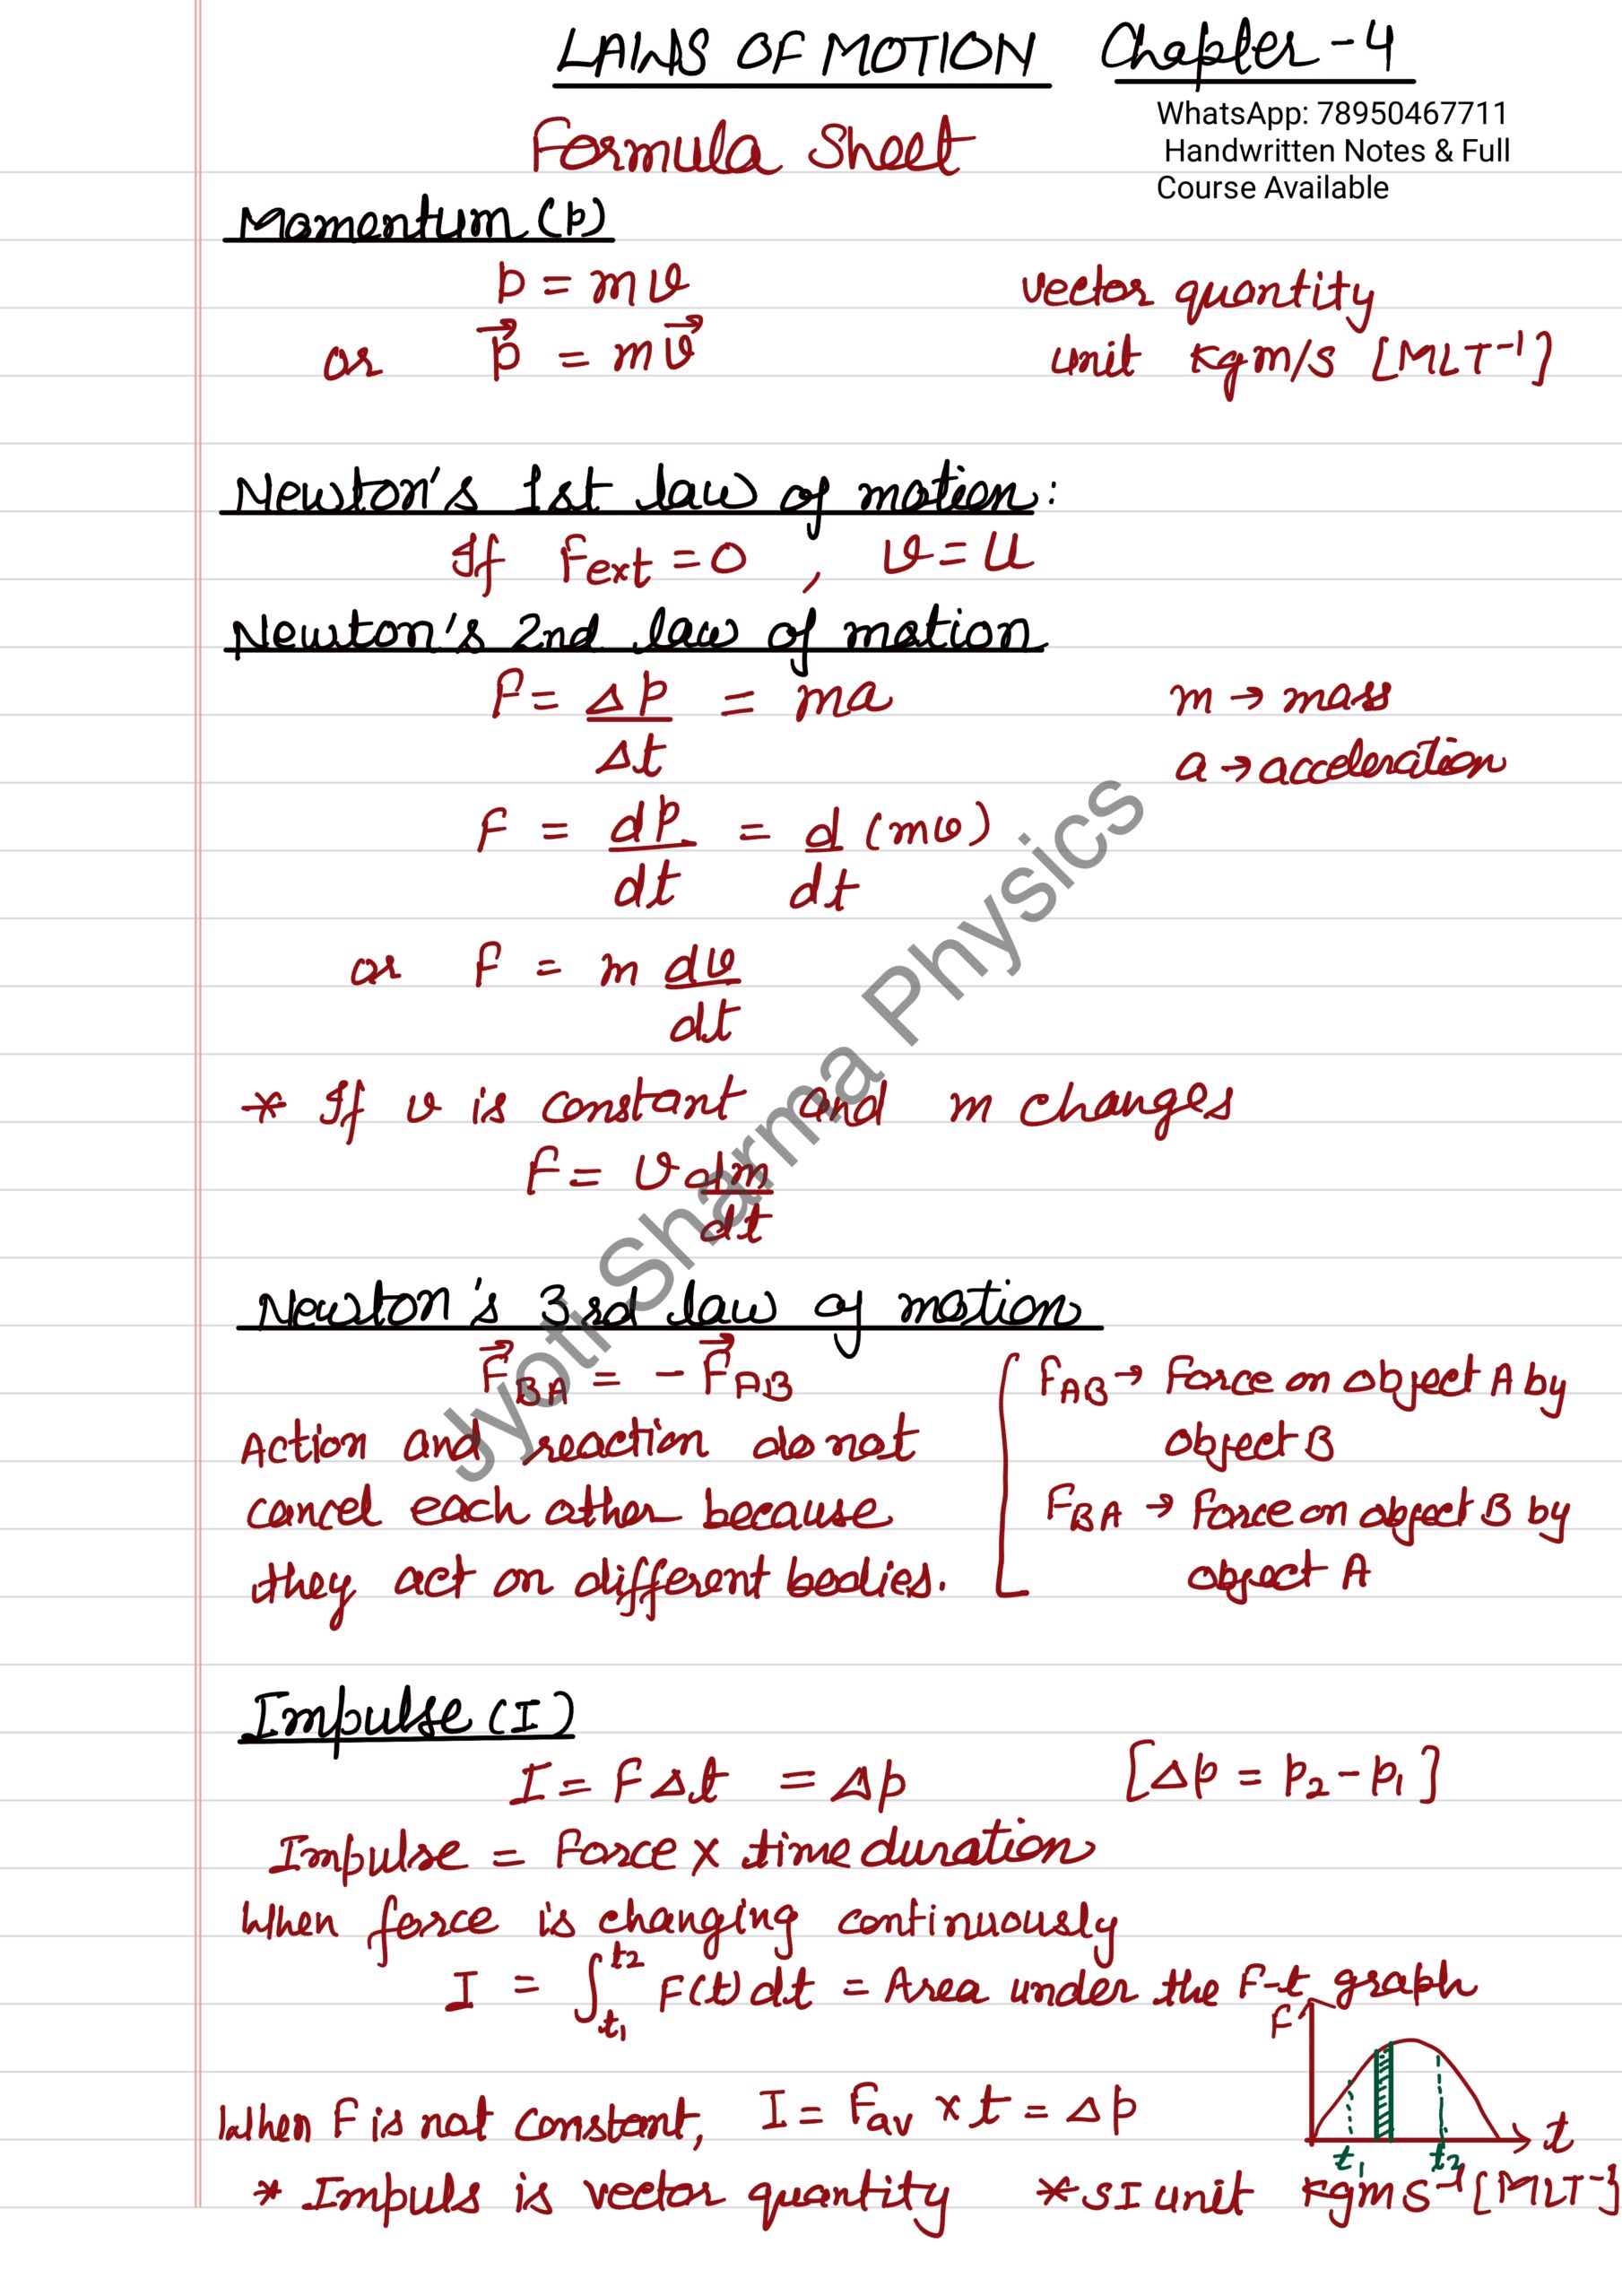 LAWS OF MOTION Chapter-4
WhatsApp: 78950467711
Handwritten Notes & Full
Course Available
Formula Sheet
Momentum (p)
p = mv vector quantity
or p⃗ = mv⃗ unit kgm/s [MLT⁻¹]
Newton's 1st law of motion:
If Fext = 0 , v = u
Newton's 2nd law of motion
F = Δp/Δt = ma m → mass
a → acceleration
F = dp/dt = d/dt (mv)
or F = m dv/dt
* If v is constant and m changes
F = v dm/dt
Newton's 3rd law of motion
F⃗BA = - F⃗AB
Action and reaction do not
cancel each other because
they act on different bodies.
FAB → Force on object A by
object B
FBA → Force on object B by
object A
Impulse (I)
I = FΔt = Δp [Δp = p₂ - p₁]
Impulse = Force × time duration
When force is changing continuously
I = ∫t₁t₂ F(t) dt = Area under the F-t graph
F
t₁ t₂ t
When F is not constant, I = Fav × t = Δp
* Impuls is vector quantity * SI unit kgms⁻¹ [MLT⁻¹]
Jyoti Sharma Physics